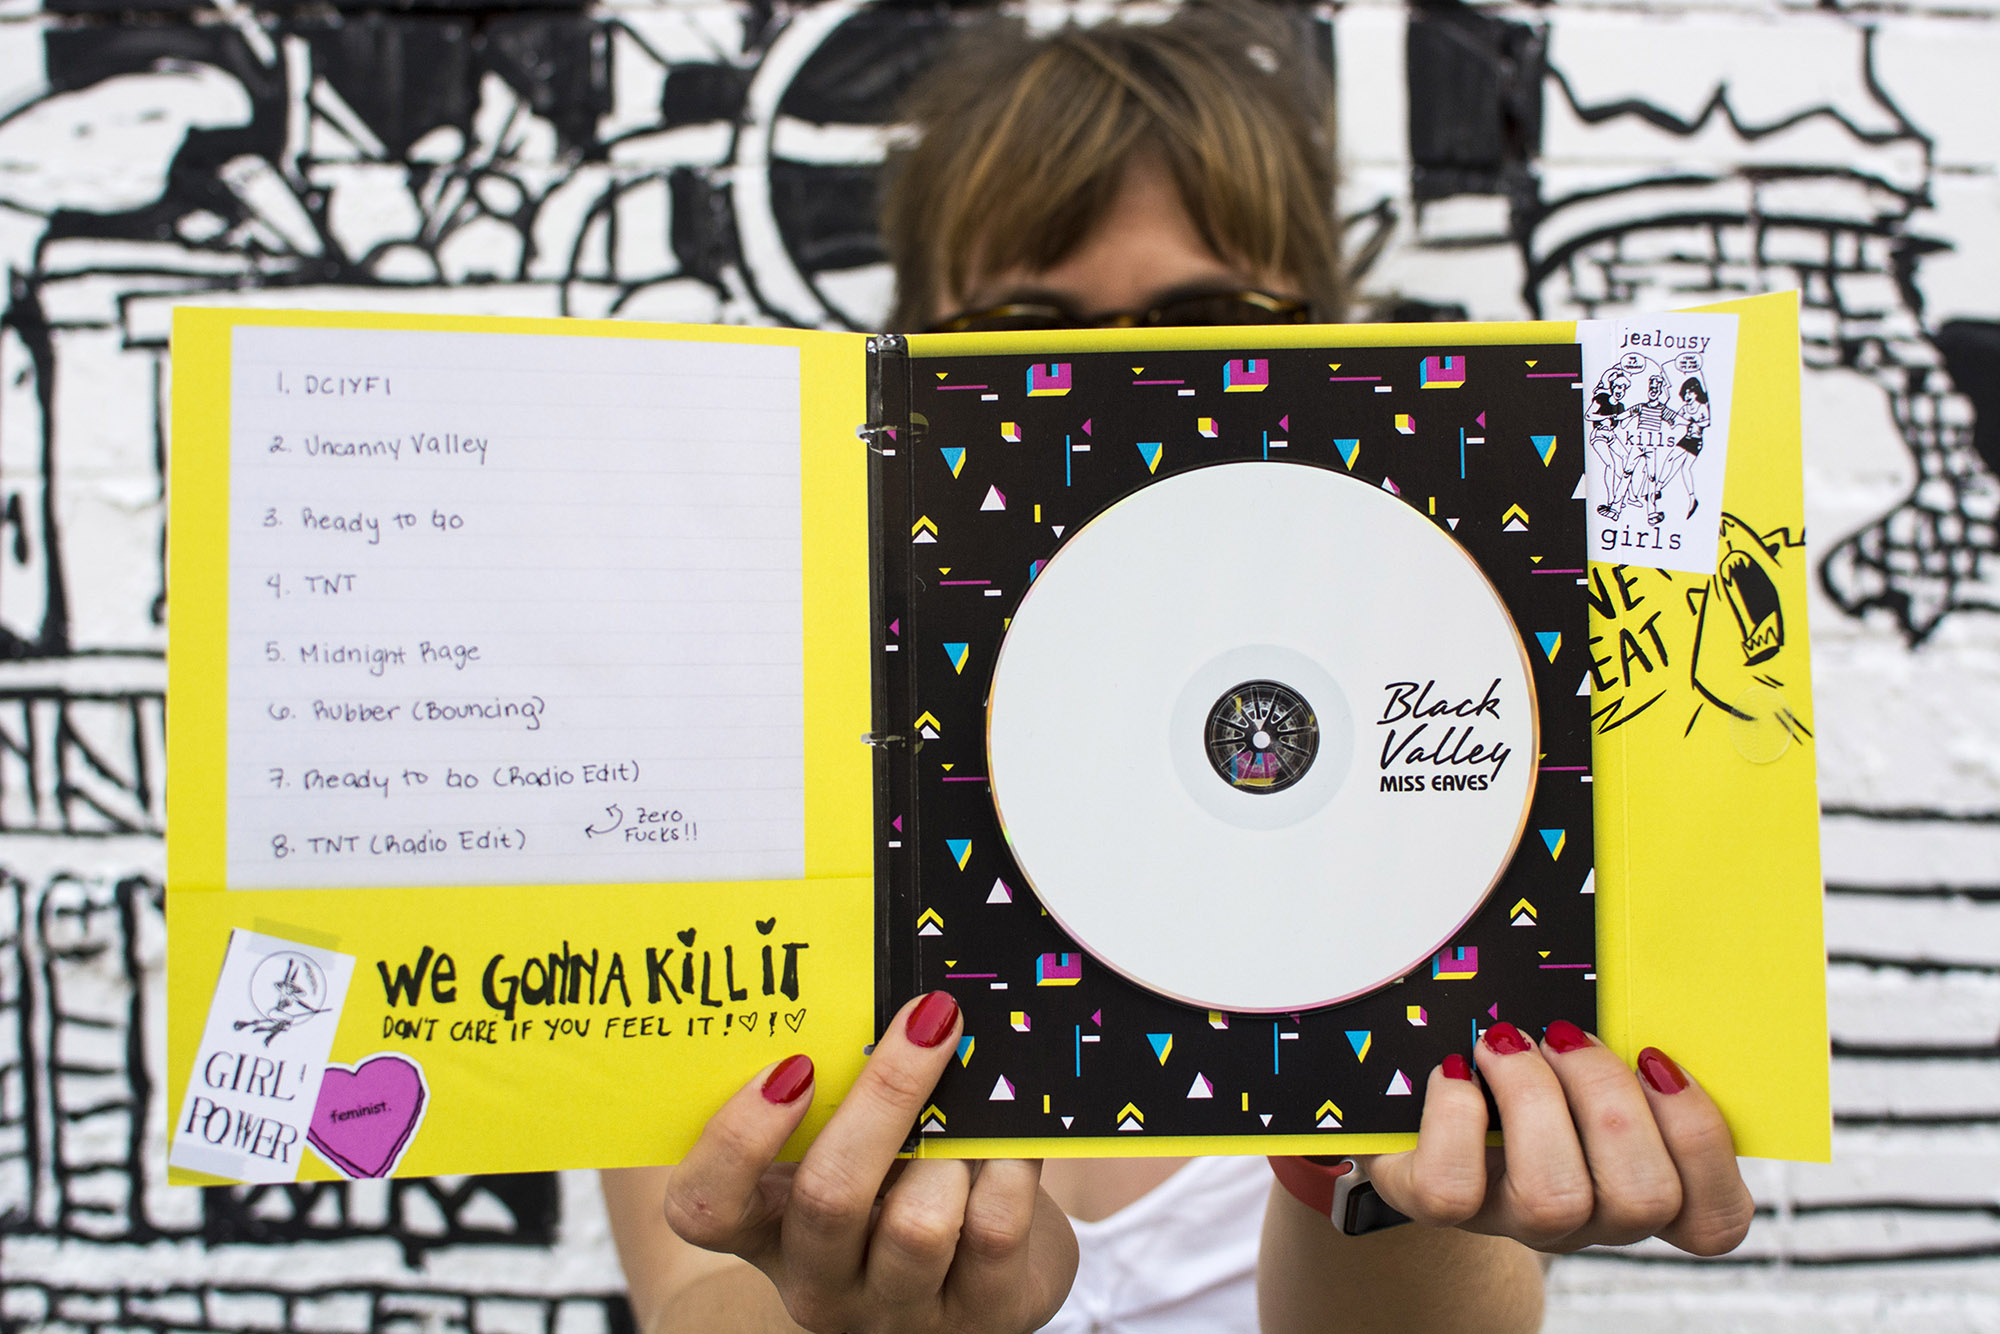 1. DCIYFI
2. Uncanny Valley
3. Ready to Go
4. TNT
5. Midnight Rage
6. Rubber (Bouncing)
7. Ready to Go (Radio Edit)
8. TNT (Radio Edit)
Zero
Fucks!!
WE GONNA KILL IT
DON'T CARE IF YOU FEEL IT!
GIRL
POWER
feminist.
Black
Valley
MISS EAVES
jealousy
kills
girls
NE
EAT